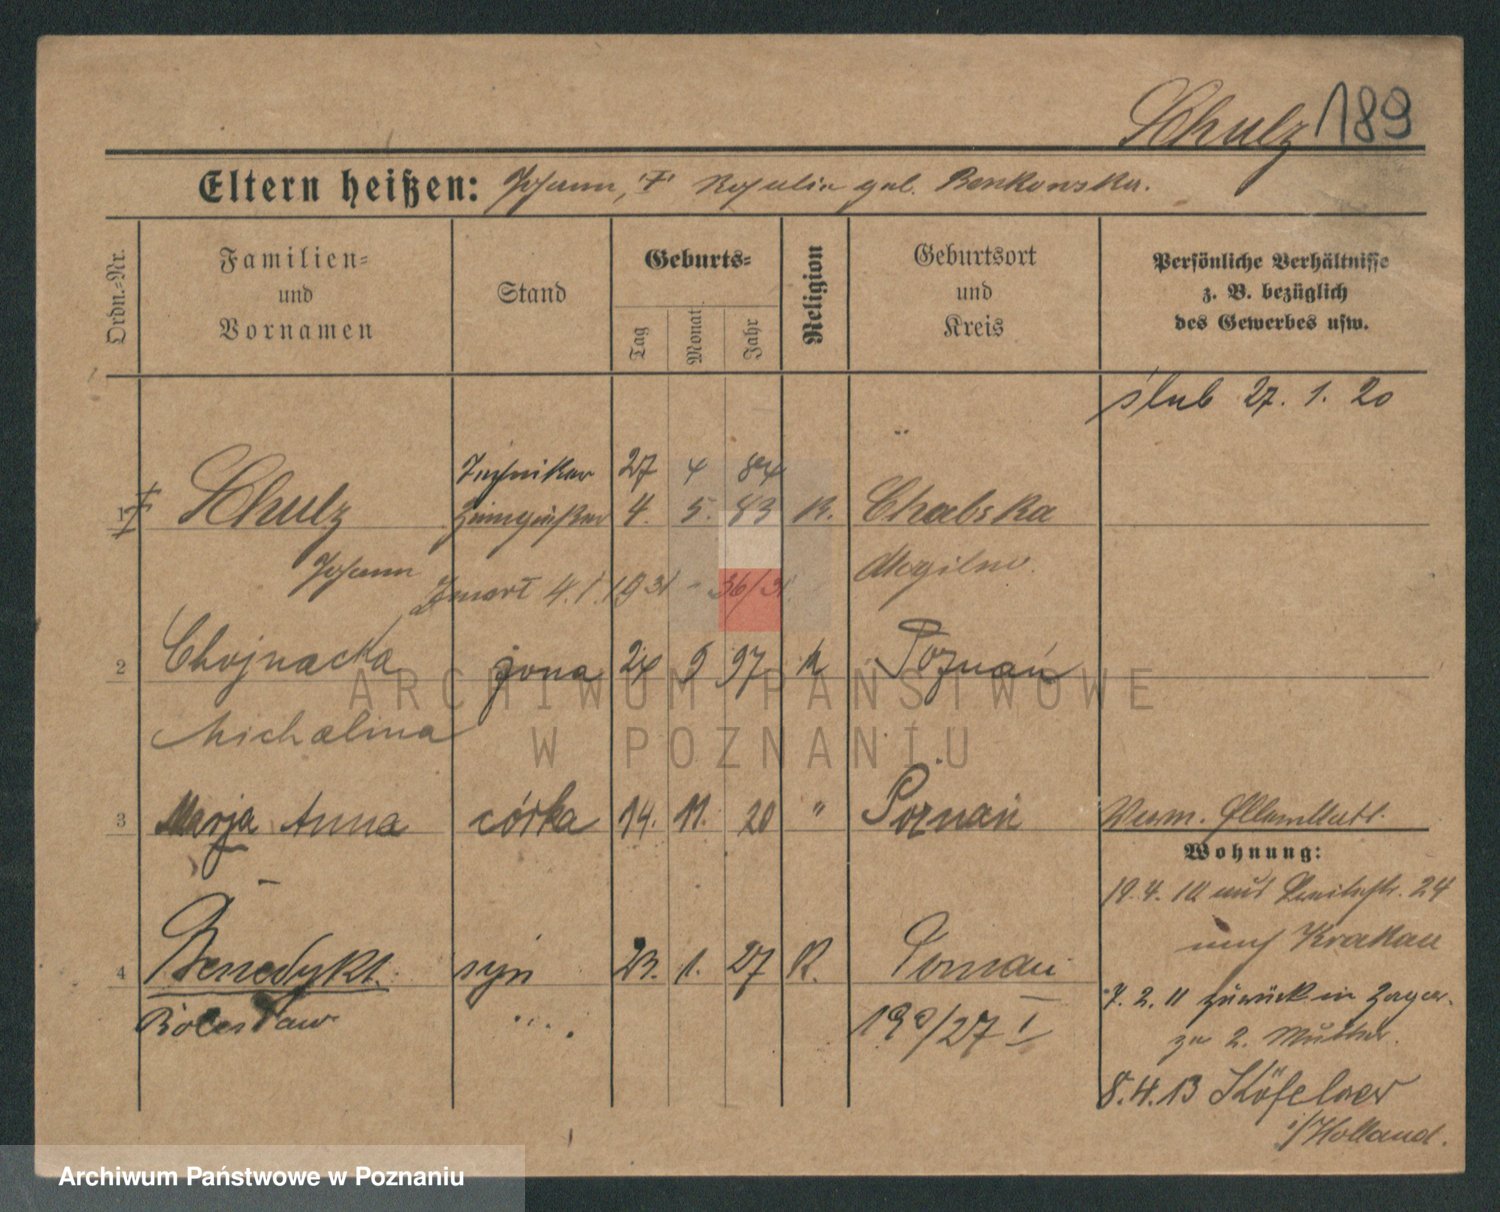 Schulz 189
Eltern heißen: Johann, Rosalia geb. Benkowska.
Ordn.-Nr.
Familien-
und
Vornamen
Stand
Geburts-
Tag
Monat
Jahr
Religion
Geburtsort
und
Kreis
Persönliche Verhältnisse
z. B. bezüglich
des Gewerbes usw.
ślub 27. 1. 20
Techniker 27 4 84
1 Schulz 4. 5. 83 K. Chabsko
Johann Mogilno.
Zmarł 4. I. 1931 - 36/31
2 Chojnacka żona 24 9 97 K Poznań
Michalina
3 Marja Anna córka 14. 11. 20 " Poznań
Wohnung:
19.4. 24
nach Krakau
4 Benedykt syn 23. 1. 27 K. Poznań
7. 2. 11 zurück in
Bolesław 190/27 I
zu 2. Mutter.
8.4.13
i/Holland.
ARCHIWUM PAŃSTWOWE
W POZNANIU
Archiwum Państwowe w Poznaniu